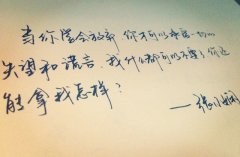 当你学会放弃 你才可以承受一切的
失望和谎言。我什么都可以不要了，你还
能拿我怎样？
——张小娴